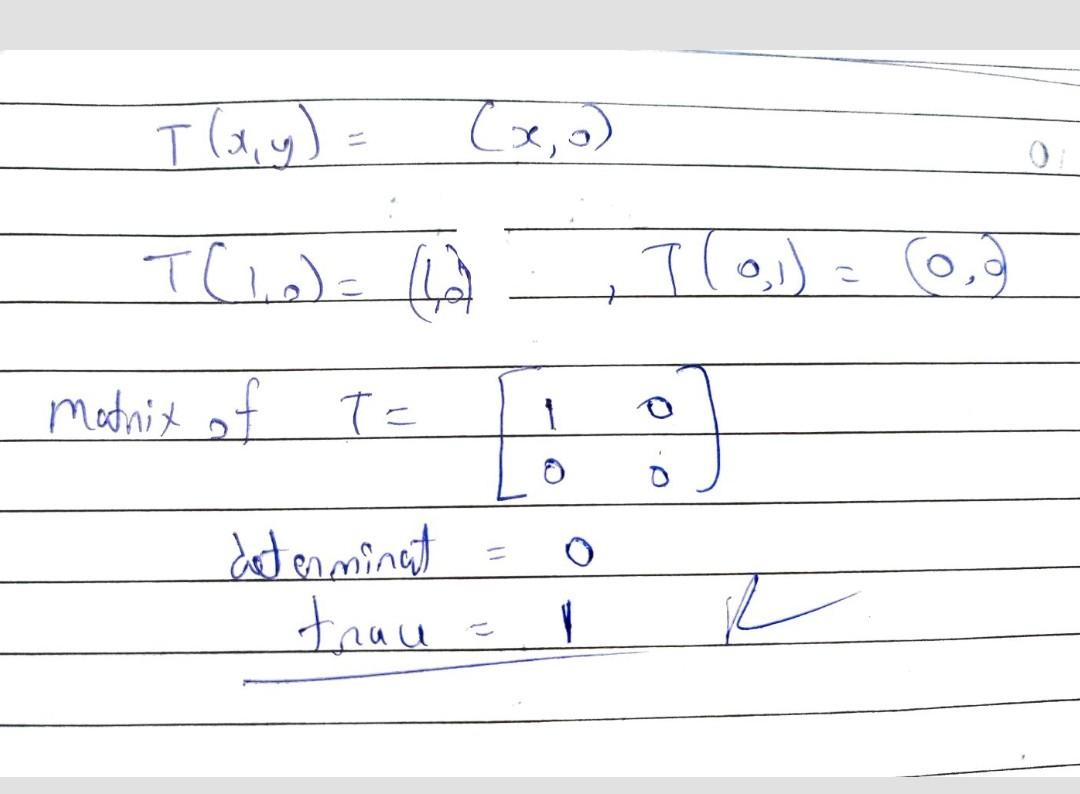 T(x,y) = (x,0)
T(1,0) = (1,0) , T(0,1) = (0,0)
matrix of T = [1 0
0 0]
determinat = 0
trace = 1